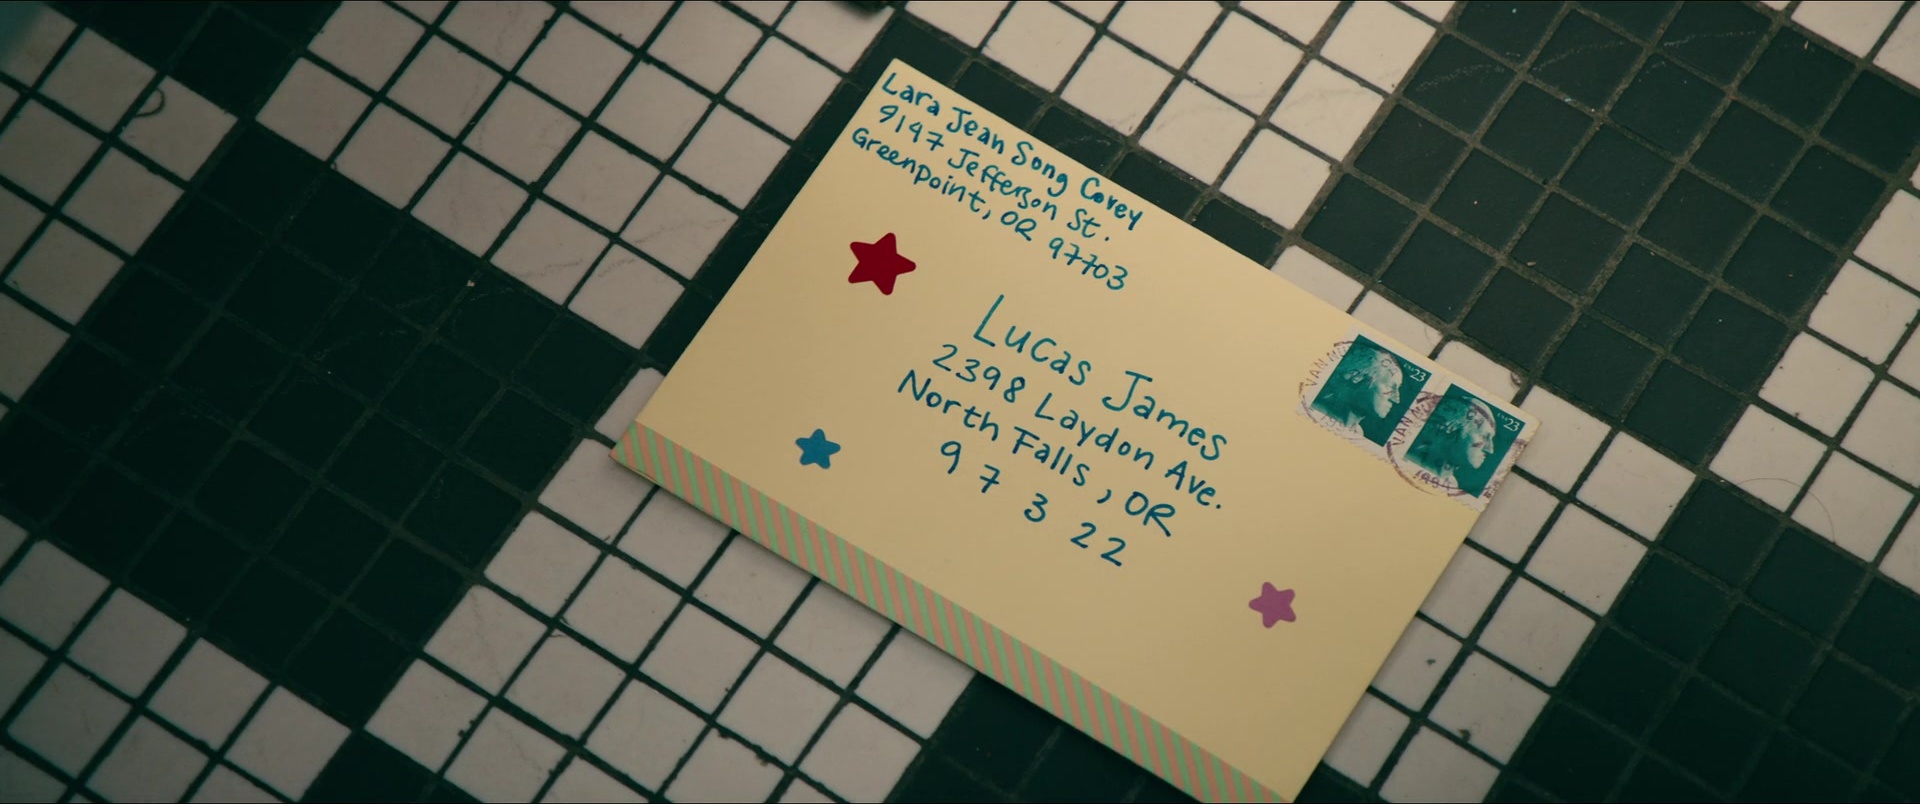 Lara Jean Song Covey
9147 Jefferson St.
Greenpoint, OR 97703
Lucas James
2398 Laydon Ave.
North Falls, OR
97322
23
23
1994